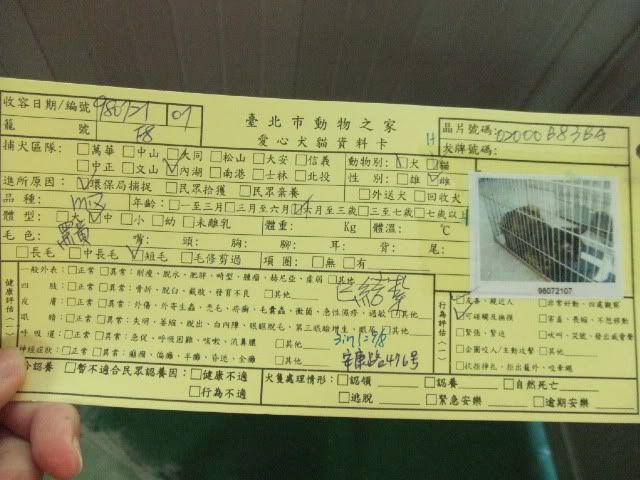 臺北市動物之家
愛心犬貓資料卡
收容日期/編號 980721 07
籠 號 F8
晶片號碼:
犬牌號碼:
捕犬區隊: □萬華 □中山 □大同 □松山 □大安 □信義 動物別: ☑犬 □貓
□中正 □文山 ☑內湖 □南港 □士林 □北投 性 別: □雄 ☑雌
進所原因: ☑環保局捕捉 □民眾拾獲 □民眾棄養 □外送犬 □回收犬
品種: mix 年齡: □一至三月 □三月至六月 ☑六月至三歲 □三至七歲 □七歲以上
體型: □大 ☑中 □小 □幼 □未離乳 體重: Kg 體溫: ℃
毛色: 黑黃 嘴: 頭: 胸: 腳: 耳: 背: 尾:
□長毛 □中長毛 ☑短毛 □毛修剪過 項圈: □無 □有
98072107
健康評估(一)
一般外表: □正常 □異常: 削瘦、脫水、肥胖、畸型、腫瘤、赫尼亞、虛弱 □其他
四 肢: □正常 □異常: 骨折、脫臼、截肢、發育不良 □其他
皮 膚: □正常 □異常: 外傷、外寄生蟲、禿毛、疥癬、毛囊蟲、黴菌、急性濕疹、過敏 □其他
□正常 □異常: 失明、萎縮、脫出、白內障、眼瞼脫毛、第三眼瞼增生、眼屎 □其他
呼吸道: □正常 □異常: 急促、呼吸困難、咳嗽、流鼻膿 □其他
神經症狀: □正常 □異常: 癲癇、偏癱、半癱、昏迷、全癱 □其他
已結紮
安康路476号
行為評估(一)
☑友善、親近人 □非常好動、四處觀察
☑可碰觸及撫摸 □害羞、畏縮、不想移動
□緊張、警送 □吠叫、哭號、發出威脅聲
□企圖咬人/主動攻擊 □其他
□抗拒掙扎、拒出籠外、咬牽繩
介認養 □暫不適合民眾認養因: □健康不適
□行為不適
犬隻處理情形: □認領 □認養 □自然死亡
□逃脫 □緊急安樂 □逾期安樂